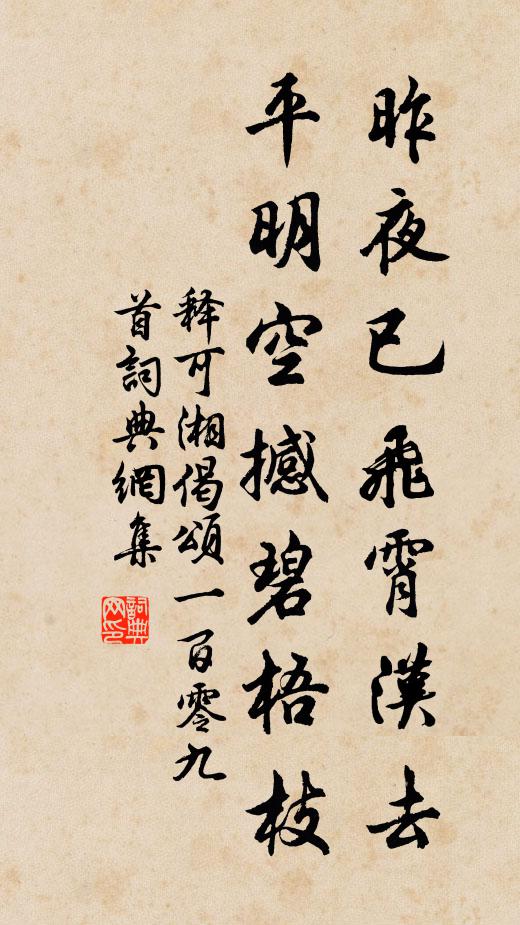 昨夜已飛霄漢去
平明空撼碧梧枝
釋可湘偈頌一百零九
首詞典網集
詞典
网印